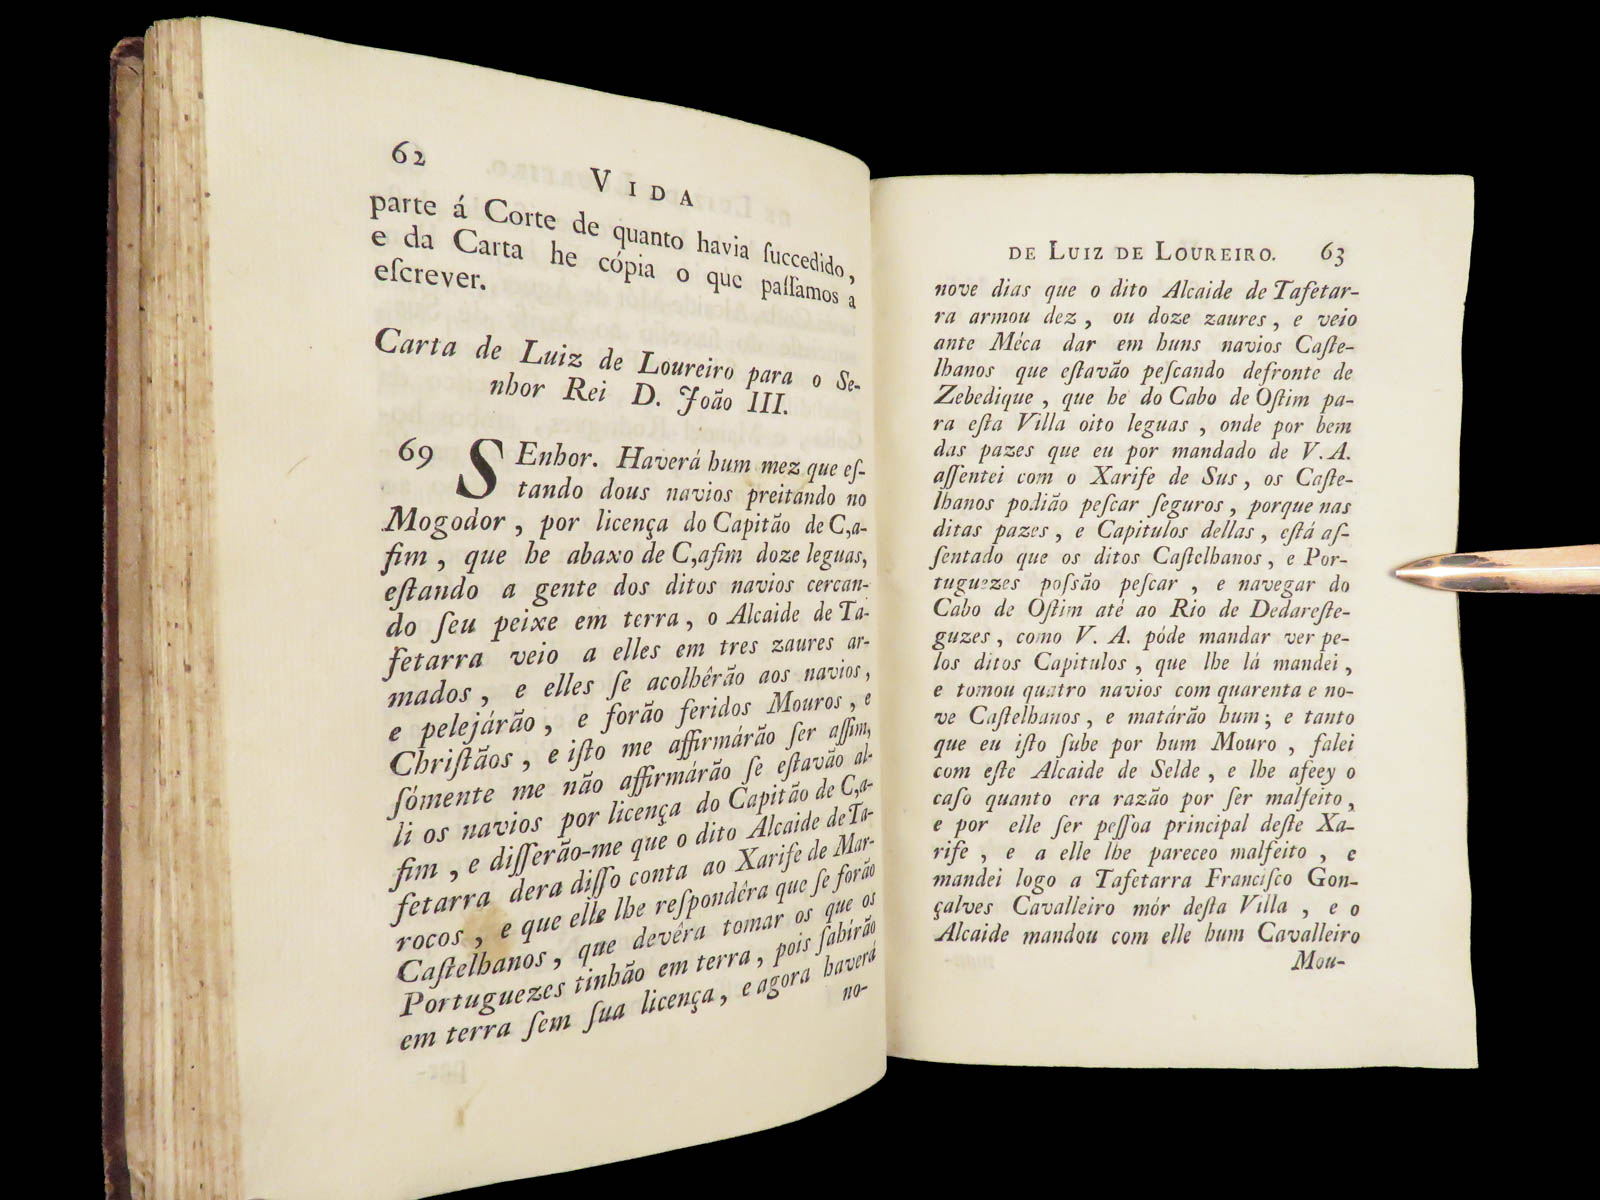 62
VIDA
parte á Corte de quanto havia ſuccedido,
e da Carta he cópia o que paſſamos a
eſcrever.
Carta de Luiz de Loureiro para o Se-
nhor Rei D. João III.
69 SEnhor. Haverá hum mez que eſ-
tando dous navios preitando no
Mogodor, por licença do Capitão de C,a-
fim, que he abaxo de C,afim doze leguas,
eſtando a gente dos ditos navios cercan-
do ſeu peixe em terra, o Alcaide de Ta-
fetarra veio a elles em tres zaures ar-
mados, e elles ſe acolhêrão aos navios,
e pelejárão, e forão feridos Mouros, e
Chriſtãos, e iſto me affirmárão ſer aſſim,
ſómente me não affirmárão ſe eſtavão al-
li os navios por licença do Capitão de C,a-
fim, e diſſerão-me que o dito Alcaide de Ta-
fetarra dera diſſo conta ao Xarife de Mar-
rocos, e que elle lhe reſpondêra que ſe forão
Caſtelhanos, que devêra tomar os que os
Portuguezes tinhão em terra, pois ſahírão
em terra ſem ſua licença, e agora haverá
no-
DE LUIZ DE LOUREIRO. 63
nove dias que o dito Alcaide de Tafetar-
ra armou dez, ou doze zaures, e veio
ante Méca dar em huns navios Caſte-
lhanos que eſtavão peſcando defronte de
Zebedique, que he do Cabo de Oſtim pa-
ra eſta Villa oito leguas, onde por bem
das pazes que eu por mandado de V. A.
aſſentei com o Xarife de Sus, os Caſte-
lhanos podião peſcar ſeguros, porque nas
ditas pazes, e Capitulos dellas, eſtá aſ-
ſentado que os ditos Caſtelhanos, e Por-
tuguezes poſsão peſcar, e navegar do
Cabo de Oſtim até ao Rio de Dedareſte-
guzes, como V. A. póde mandar ver pe-
los ditos Capitulos, que lhe lá mandei,
e tomou quatro navios com quarenta e no-
ve Caſtelhanos, e matárão hum; e tanto
que eu iſto ſube por hum Mouro, falei
com eſte Alcaide de Selde, e lhe afeey o
caſo quanto era razão por ſer malfeito,
e por elle ſer peſſoa principal deſte Xa-
rife, e a elle lhe pareceo malfeito, e
mandei logo a Tafetarra Franciſco Gon-
çalves Cavalleiro mór deſta Villa, e o
Alcaide mandou com elle hum Cavalleiro
Mou-